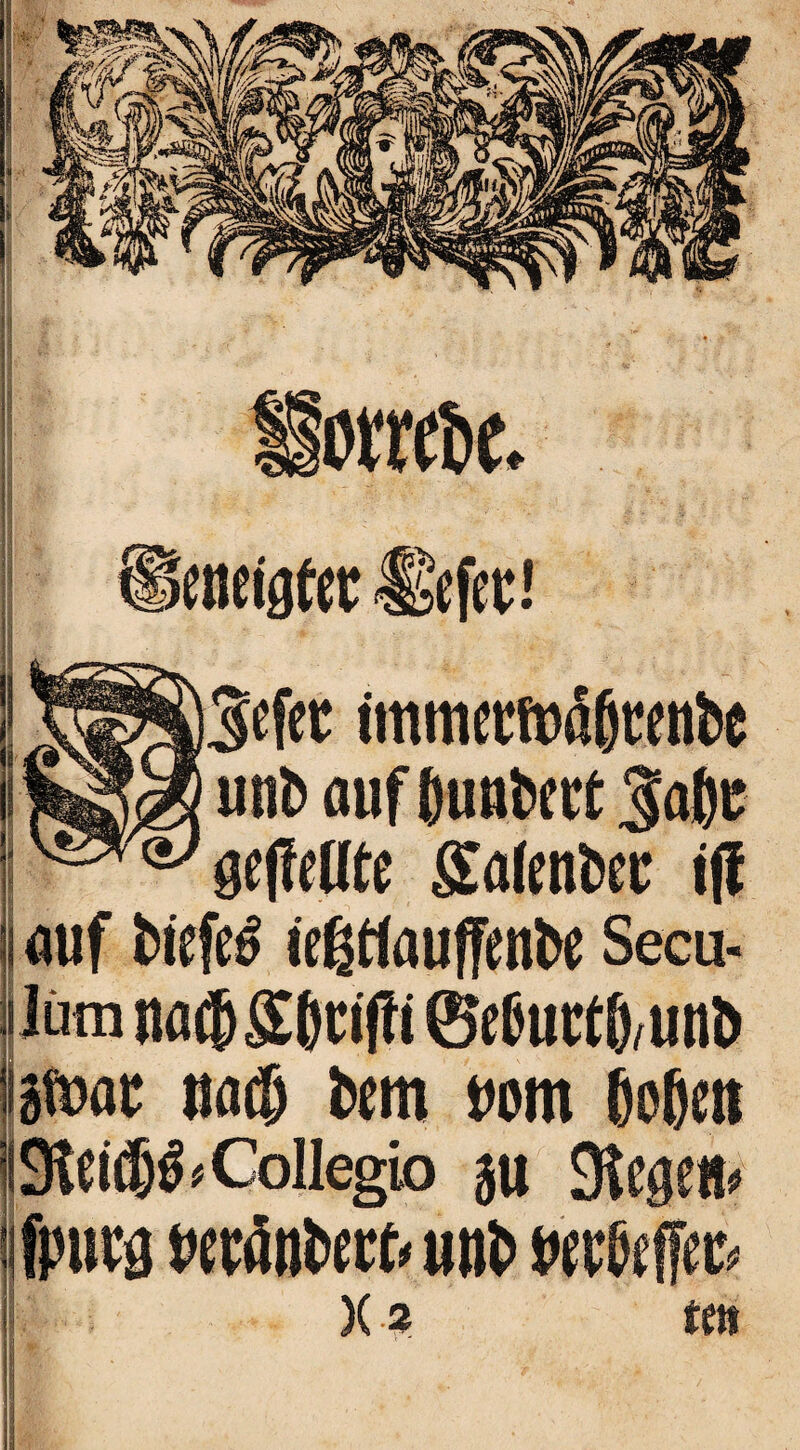 Vorrede.
Geneigter Leser!
DIeser immerwährende
und auf hundert Jahr
gestellte Calender ist
auf dieses ietztlauffende Secu-
lum nach Christi Geburth/und
zwar nach dem vom hohen
Reichs-Collegio zu Regen-
spurg verändert- und verbesser-
)( 2 ten